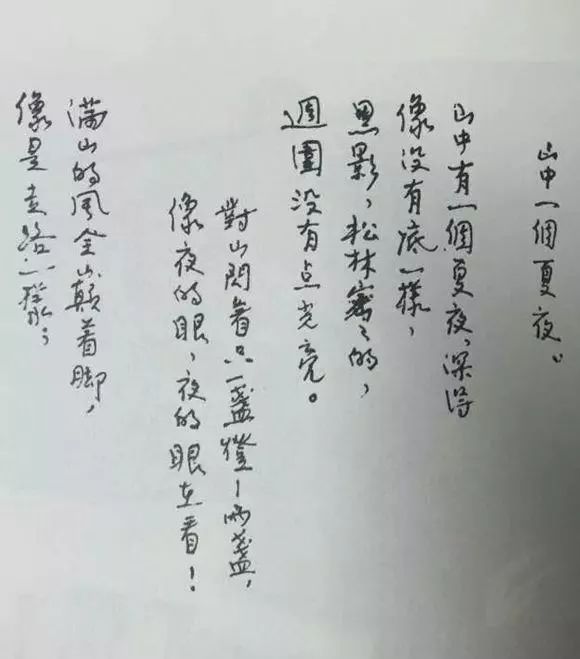 山中一個夏夜。
山中有一個夏夜，深得
像没有底一樣，
黑影，松林密々的，
週圍没有点光亮。
對山閃着只一盞燈—兩盞，
像夜的眼，夜的眼在看！
滿山的風全蹑着脚，
像是走路一樣；